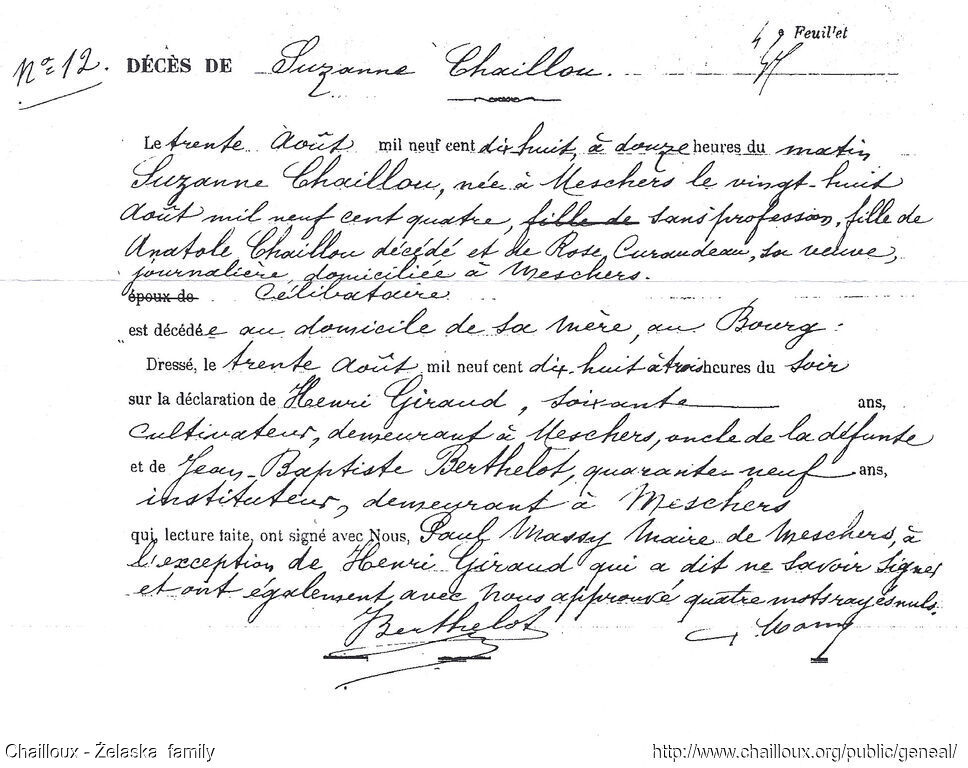 4e Feuillet
N° 12. DÉCÈS DE Suzanne Chaillou.
Le trente Août mil neuf cent dix huit, à douze heures du matin
Suzanne Chaillou, née à Meschers le vingt-huit
Août mil neuf cent quatre, fille de sans profession, fille de
Anatole Chaillou décédé et de Rose Curaudeau, sa veuve,
journalière domiciliée à Meschers.
époux de Célibataire
est décédée au domicile de sa mère, au Bourg :
Dressé, le trente Août mil neuf cent dix-huit à trois heures du soir
sur la déclaration de Henri Giraud, soixante ans,
cultivateur, demeurant à Meschers, oncle de la défunte
et de Jean-Baptiste Berthelot, quarante neuf ans,
instituteur, demeurant à Meschers
qui, lecture faite, ont signé avec Nous, Paul Massy Maire de Meschers, à
l'exception de Henri Giraud qui a dit ne savoir signer
et ont également avec nous approuvé quatre mots rayés nuls.
Berthelot Massy
Chailloux - Želaska family http://www.chailloux.org/public/geneal/